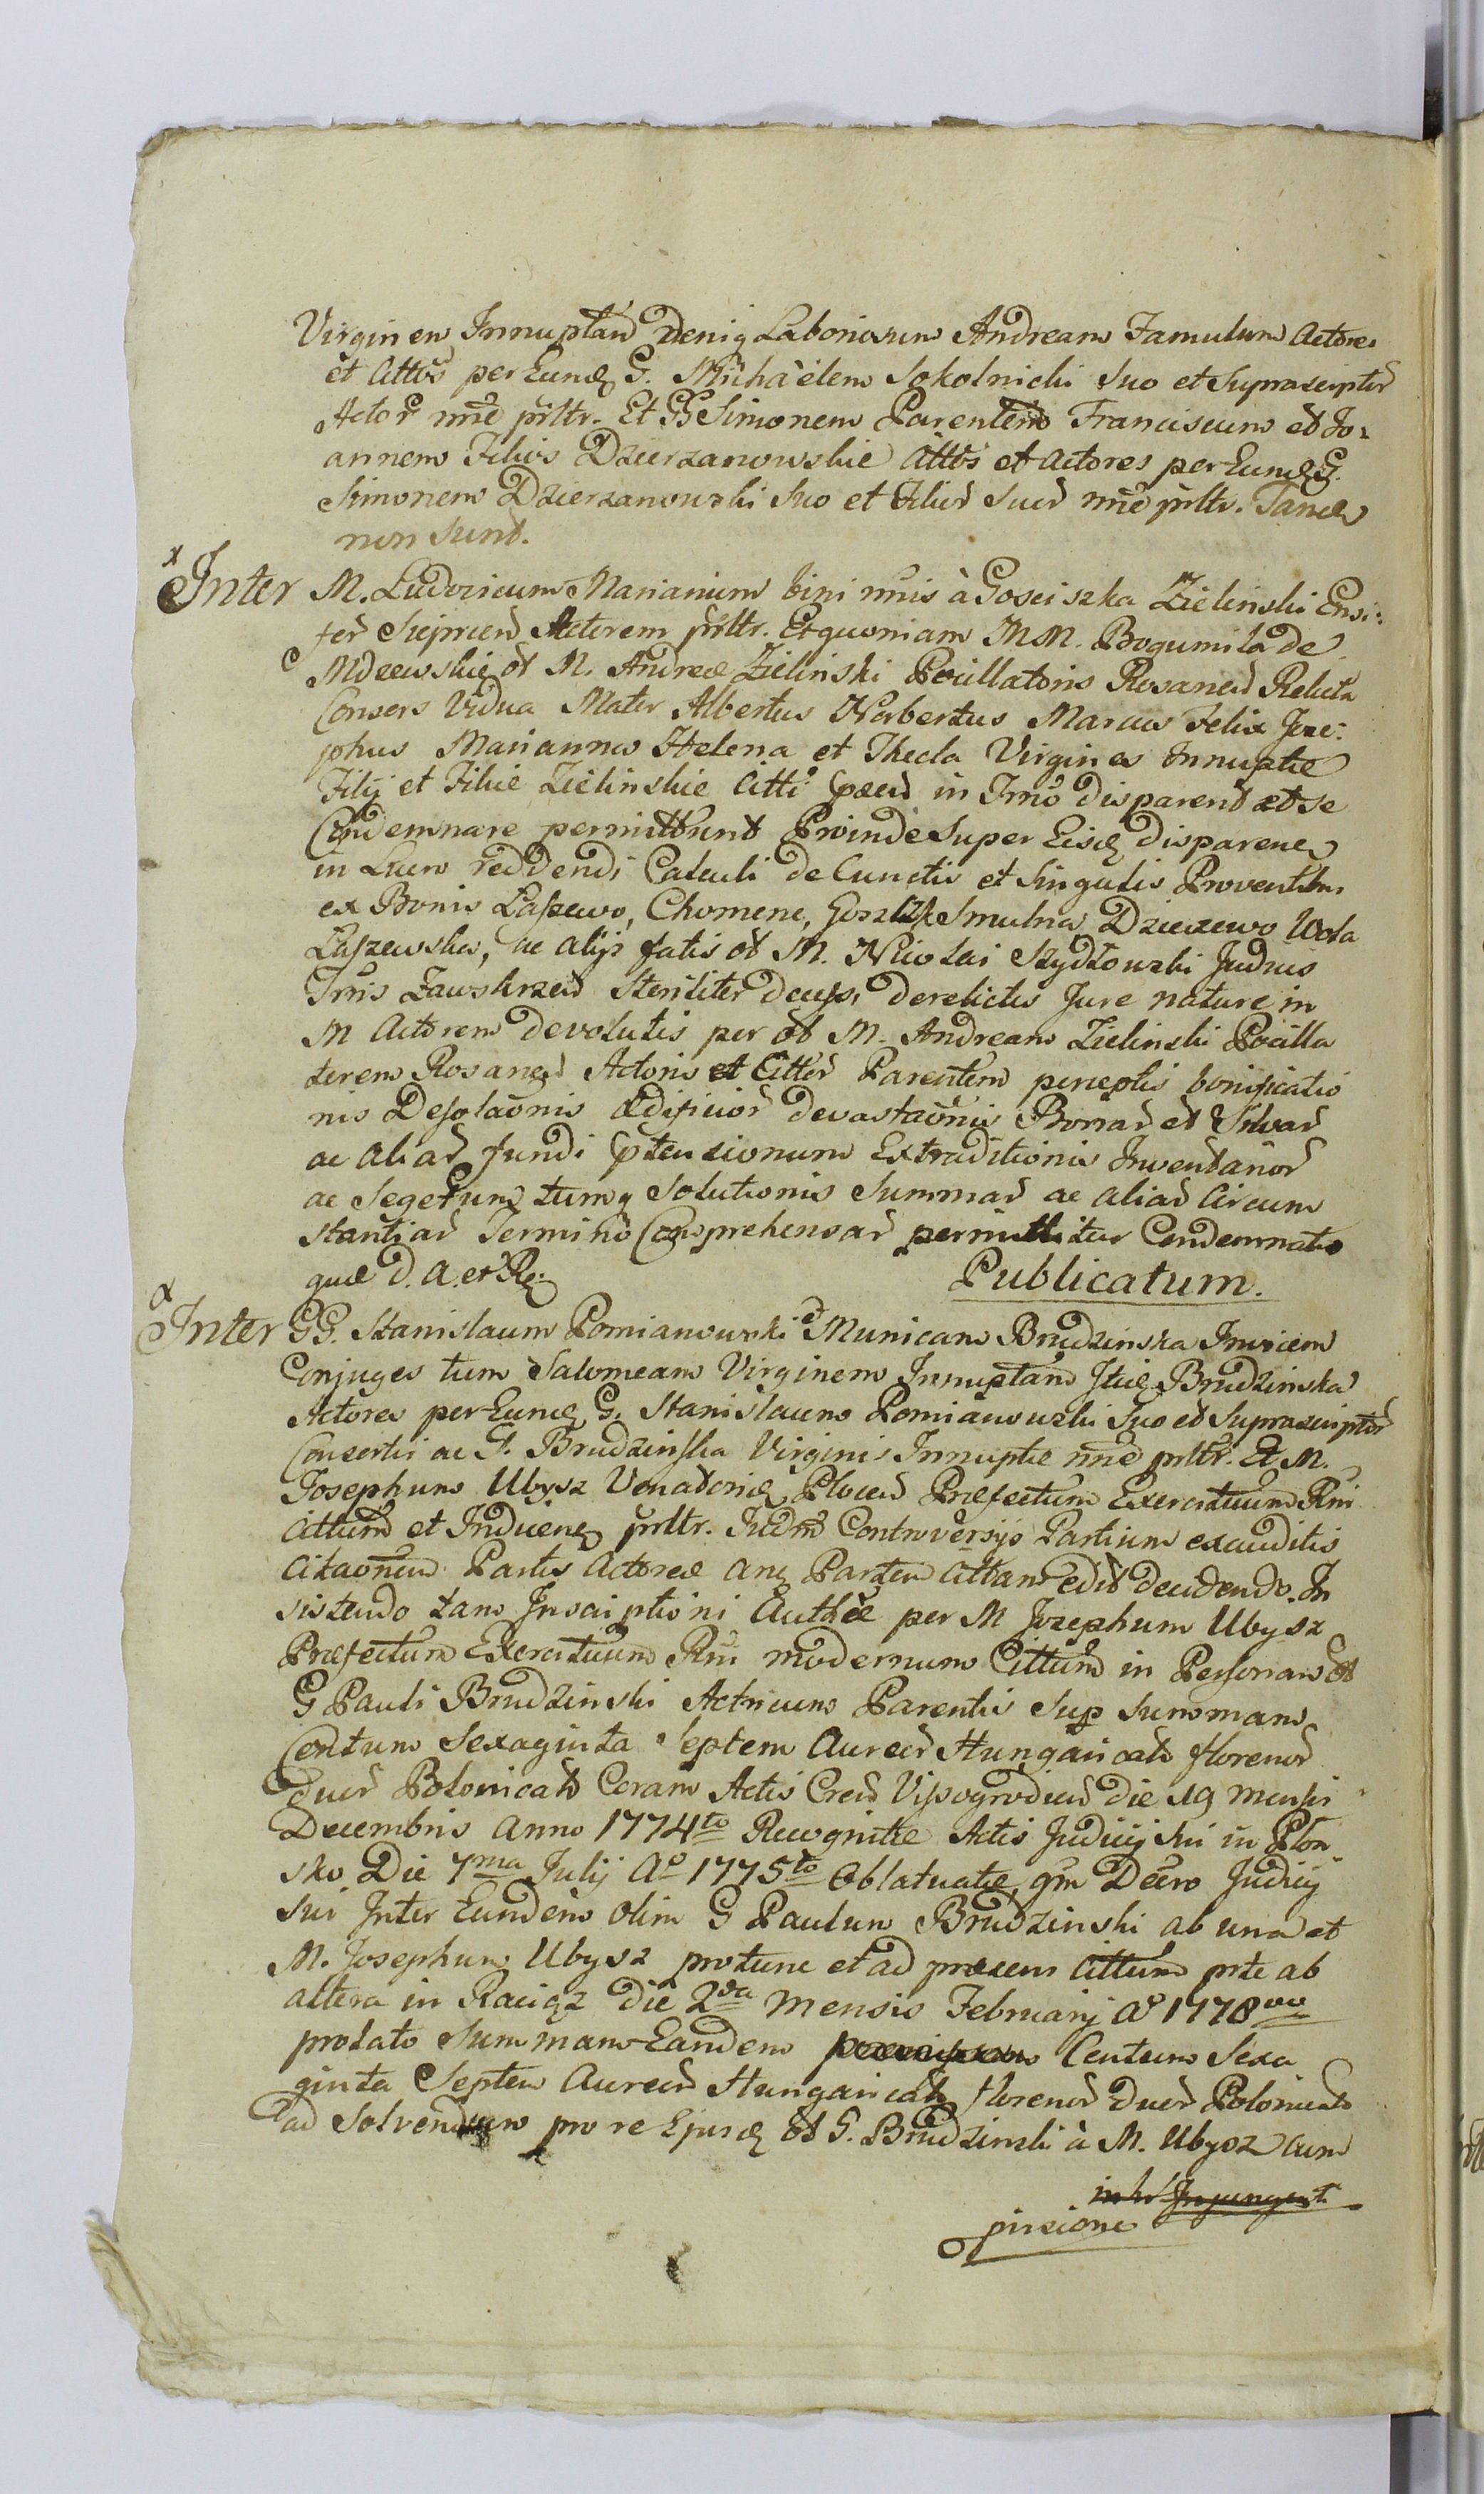 Virginem Innuptam Deniq Laboriosum Andream Famulum Actores
et Cittos per Eund G. Michaëlem Sokolnicki Suo et Suprascriptor
Actor nne prltr. Et GG Simonem Parentem Franciscum et Jo-
annem Filios Dzierzanowskie Cittos et Actores per Eund G.
Simonem Dzierzanowski Suo et Filior Suor nne prltr. Tand
non sunt.
x Inter M. Ludovicum Marianum bini nnis à Gosciszka Zielinski Ensi-
fer Sieprcen Actorem prltr. Et quoniam MM. Bogumila de
Mdzewskie ol M. Andreæ Zielinski Pocillatoris Rosanen Relicta
Consors Vidua Mater Albertus Norbertus Marcus Felix Joze-
phus Marianna Helena et Thecla Virgines Innuptæ
Filij et Filiæ Zielinskie Citti in Trno disparent et se
Condemnare permittunt Proinde Super Eisd disparen
in Lucro reddendi Calculi de Cunctis et Singulis Proventibus
ex Bonis Laszewo, Chomenc, Smulna Dzieczewo Wola
Laszewska, ac alijs fatis ol M. Nicolai Szydłowski Judicis
Trris Zawskrzen Steriliter decess, derelictis Jure naturæ in
M Actorem devolutis per ol M. Andream Zielinski Pocilla
torem Rosanen Actoris et Cittor Parentem perceptis bonificatio
nis Desolaonis Ædificior devastaonis Borrar et Silvar
ac aliar fundi ptensionum Extraditionis Inventarior
ac Segetum tumq Solutionis Summar ac aliar Circum
stantiar Termino Comprehensar permittitur Condemnatio
quæ d. A. et R.
Publicatum.
x Inter GG. Stanislaum Pomianowski et Municam Brudzinska Invicem
Conjuges tum Salomeam Virginem Innuptam Itid Brudzinska
Actores per Eund G. Stanislaum Pomianowski Suo et Suprascriptor
Consortis ac G. Brudzinska Virginis Innuptæ nne prltr. Et M.
Josephum Ubysz Venatorid Plocen Præfectum Exercituum Rni
Cittum et Inducen prltr. Iudm Controversijs Partium exauditis
Citaonem Partis Actoreæ anq Partem Cittam edit decidendo. In
sistendo tam Inscriptioni Authcæ per M Jozephum Ubysz
Præfectum Exercituum Rni modernum Cittum in Personam ol
G Pauli Brudzinski Actricum Parentis Sup Summam
Centum Sexaginta Septem Aureor Hungaricalu florenor
duor Polonicalu Coram Actis Cren Vissogrodien die 19 mensis
Decembris anno 1774to Recognitæ Actis Judicij Sui in Plon
sko Die 7ma Julij Ao 1775to Oblatuatæ, qm Decro Judicij
Sui Inter Eundem olim G Paulum Brudzinski ab una et
M. Josephum Ubysz protunc et ad præsens Cittum prte ab
altera in Raciąz die 2da Mensis Februarij Ao 1778vo
prolato Summam Eandem Centum Sexa
ginta Septem Aureor Hungaricalu florenor duor Polonicalu
ad Solvendum pro re Ejusd ol G. Brudzinski à M. Ubysz cum
inhr Injungent